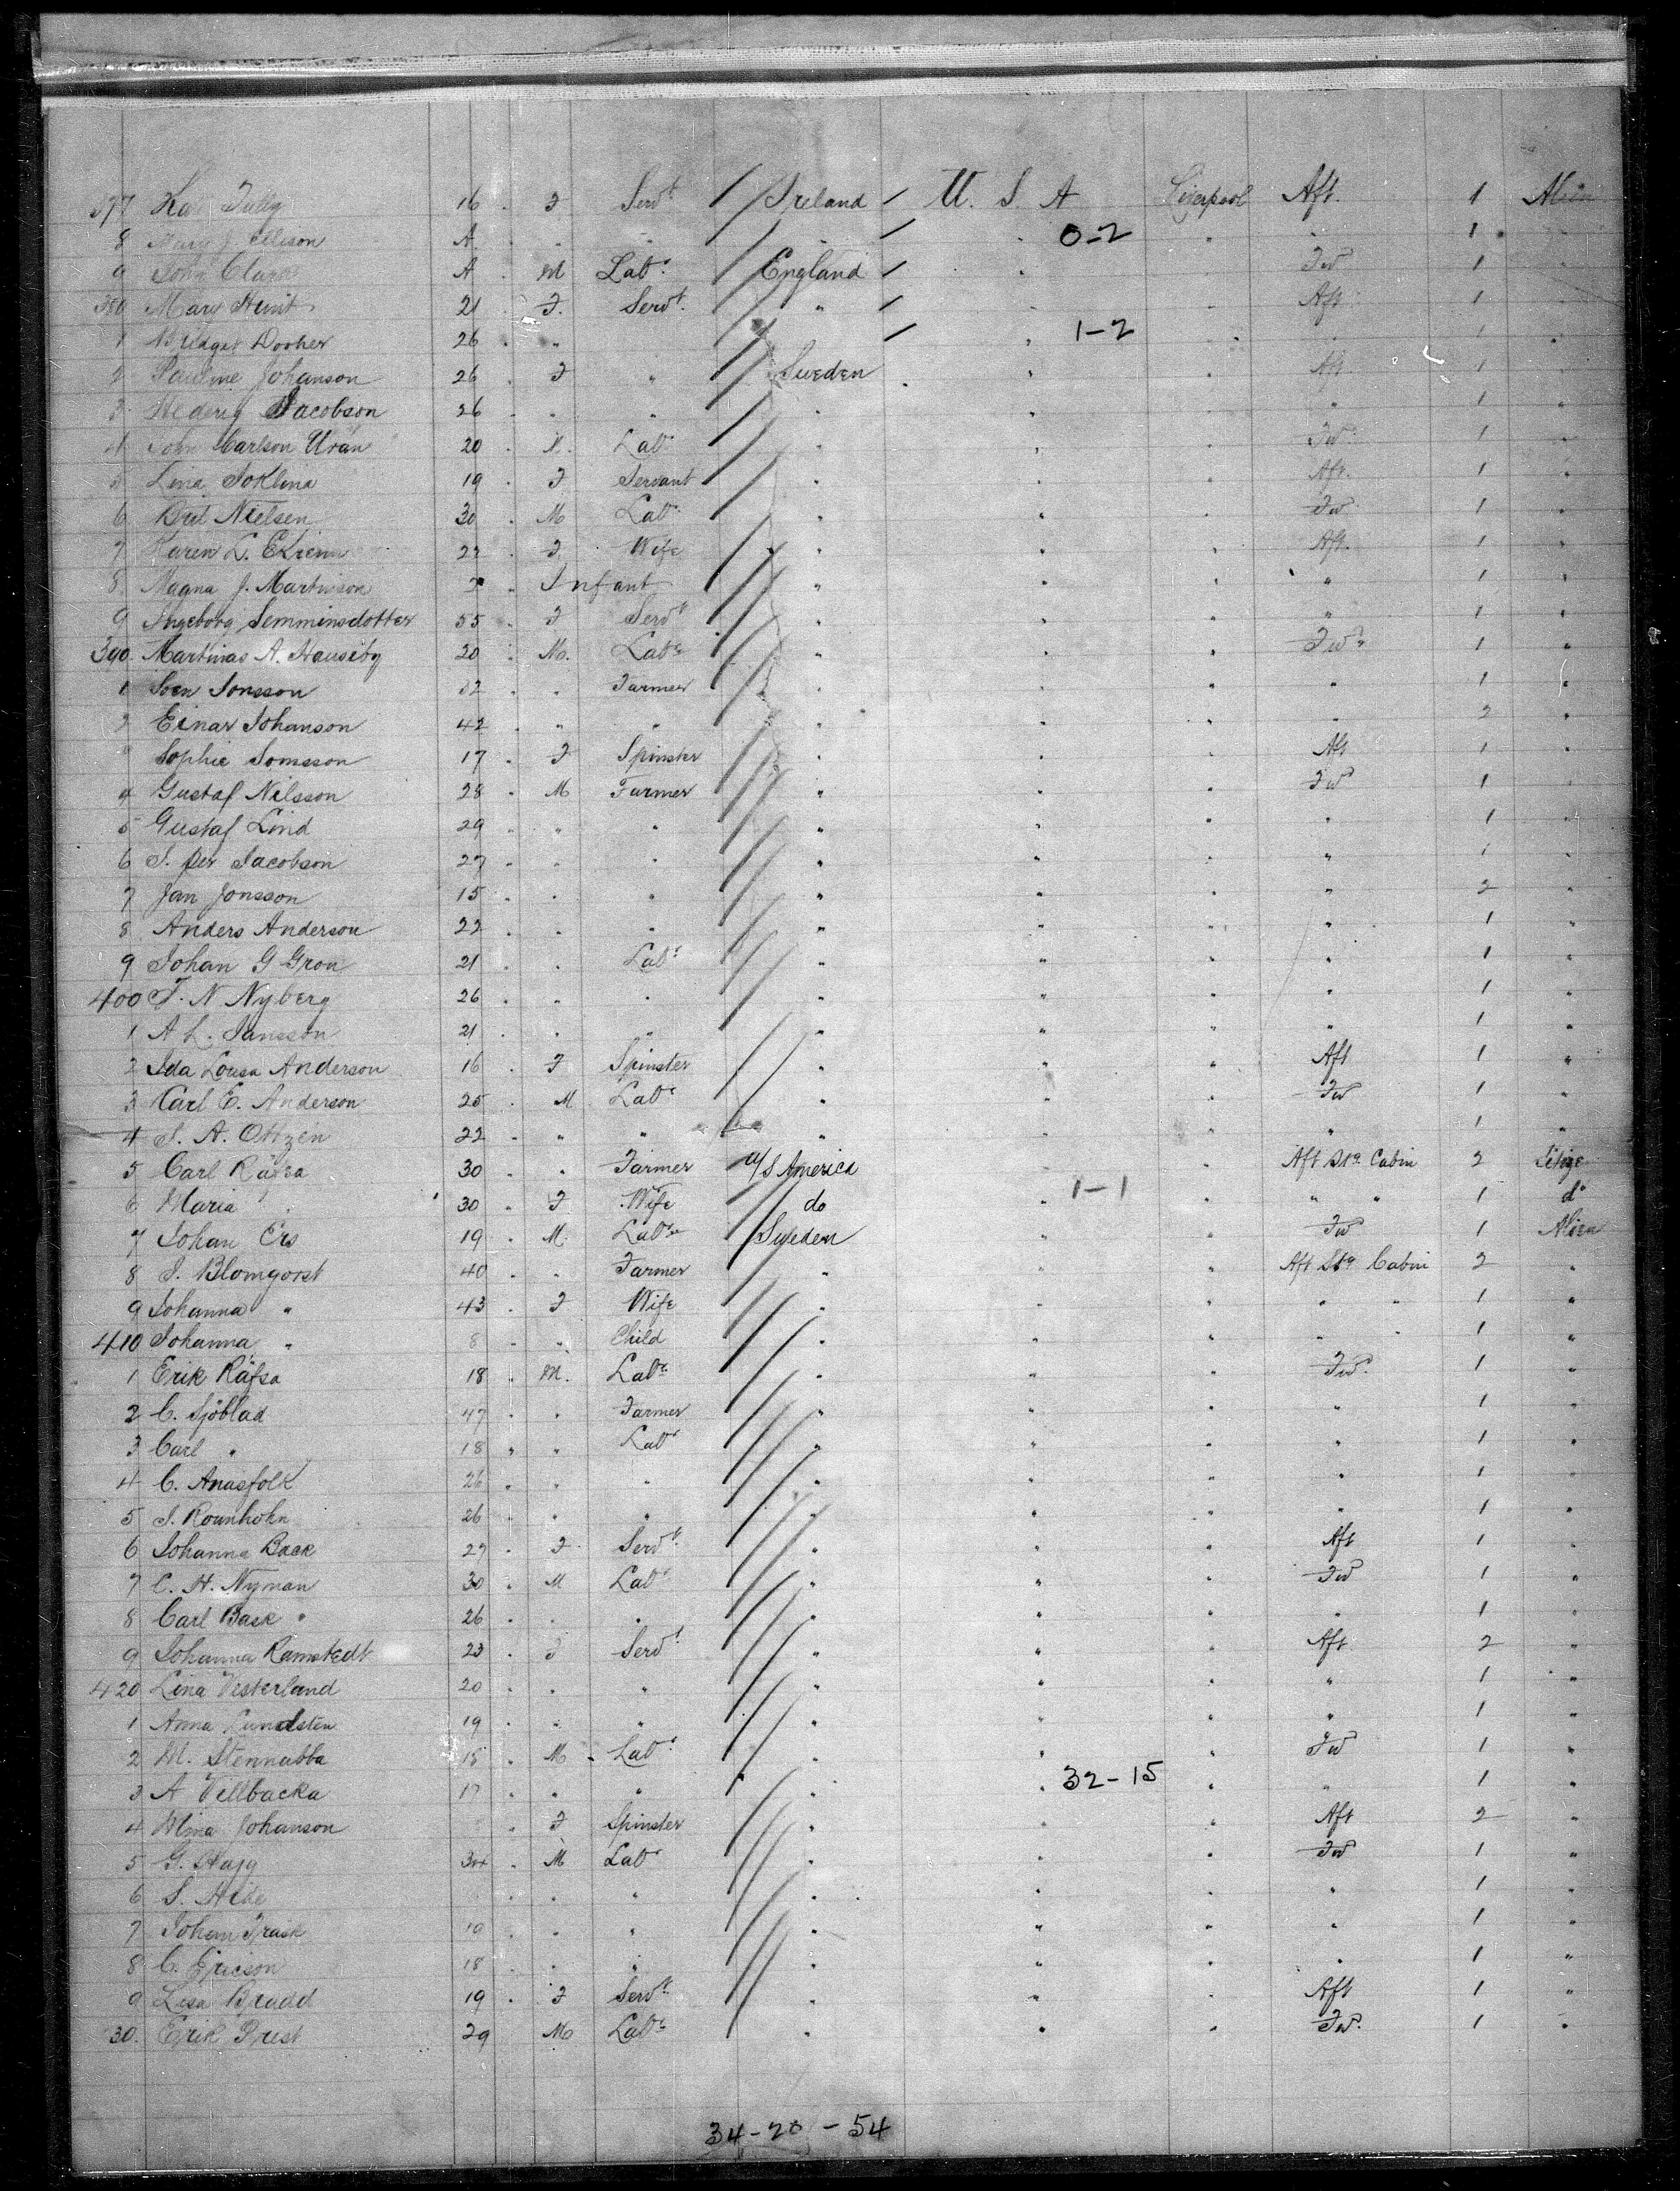 377 Ka Tully 16 . F Servt / Ireland / U. S. A Liverpool Aft. 1 Alien
8 Mary J. Ellison A. . " " " " 0-2 " " 1 "
9 John Clark A . M Labr England / " " Fwd 1 "
380 Mary Hunt 21 . F. Servt. " / " " Aft 1 "
1 Bridget Dooher 26 . " " / " 1-2 " " 1 "
2 Pauline Johanson 26 . F " Sweden " " Aft 1 "
3 Hedevig Jacobson 26 . " " " " " " 1 "
4 John Carlson Urån 20 . M. Labr " " " Fwd 1 "
5 Lina Soklina 19 . F Servant " " " Aft. 1 "
6 Nielsen 30 . M Labr " " " Fwd 1 "
7 Karen L. 22 . F Wife " " " Aft. 1 "
8 Magna J. Martinson . Infant " " " " 1 "
9 Ingeborg Semminsdotter 55 . F Servt " " " " 1 "
390 Martinas A. Hauseby 20 . M. Labr " " " Fwd 1 "
1 Sven Jonsson . " Farmer " " " " 1 "
2 Einar Johanson 42 . " " " " " " 2 "
Sophie Jonsson 17 . F Spinster " " " Aft 1 "
4 Gustaf Nilsson 28 . M Farmer " " " Fwd 1 "
5 Gustaf Lind 29 " " " " " " " 1 "
6 J. Per Jacobson 27 . " " " " " " 1 "
7 Jan Jonsson 15 . " " " " " " 2 "
8 Anders Anderson 22 . " " " " " " 1 "
9 Johan G Gron 21 . " Labr " " " " 1 "
400 F. N Nyberg 26 . " " " " " " 1 "
1 A L. Jansson 21 . " " " " " " 1 "
2 Ida Lousa Anderson 16 . F Spinster " " " Aft 1 "
3 Carl E. Anderson 25 . M Labr " " " Fwd 1 "
4 J. A. Ottzen 22 . " " " " " " 1 "
5 Carl Räfsa 30 . " Farmer U/S America " " Aft Stg. Cabin 2 Citize
6 Maria " 30 " F Wife do " 1-1 " " " 1 do
7 Johan Ers 19 . M. Labr Sweden " " Fwd 1 Alien
8 J. Blomqvist 40 . " Farmer " " " Aft Stg Cabin 2 "
9 Johanna " 43 . F Wife " " " " " 1 "
410 Johanna " 8 . " Child " " " " " 1 "
1 Erik Räfsa 18 . M. Labr " " " Fwd. 1 "
2 C. Sjöblad 47 . " Farmer " " " " 1 "
3 Carl " 18 " " Labr " " " " 1 "
4 C. Anasfolk 26 " " " " " " " 1 "
5 J. 26 . " " " " " " 1 "
6 Johanna Back 27 . F Servt. " " " Aft 1 "
7 C. H. Nyman 30 . M Labr " " " Fwd 1 "
8 Carl Bask " 26 . " " " " " " 1 "
9 Johanna Ramstedt 23 . F Servt " " " Aft 2 "
420 Lina Vesterlund 20 . " " " " " " 1 "
1 Anna Lundsten 19 . " " " " " " 1 "
2 M. Stennabba 18 . M Labr " " " Fwd 1 "
3 A Vellbacka 17 . " " " " 32-15 " " 1 "
4 Mina Johanson . F Spinster " " " Aft 2 "
5 G. Hagg . M Labr " " " Fwd 1 "
6 S. . " " " " " " 1 "
7 Johan Trask 19 . " " " " " " 1 "
8 C. Ericson 18 . " " " " " " 1 "
9 Lisa Brudd 19 . F Servt. " " " Aft 1 "
30. Erik Prest 29 M Labr " " " Fwd. 1 "
34-20-54